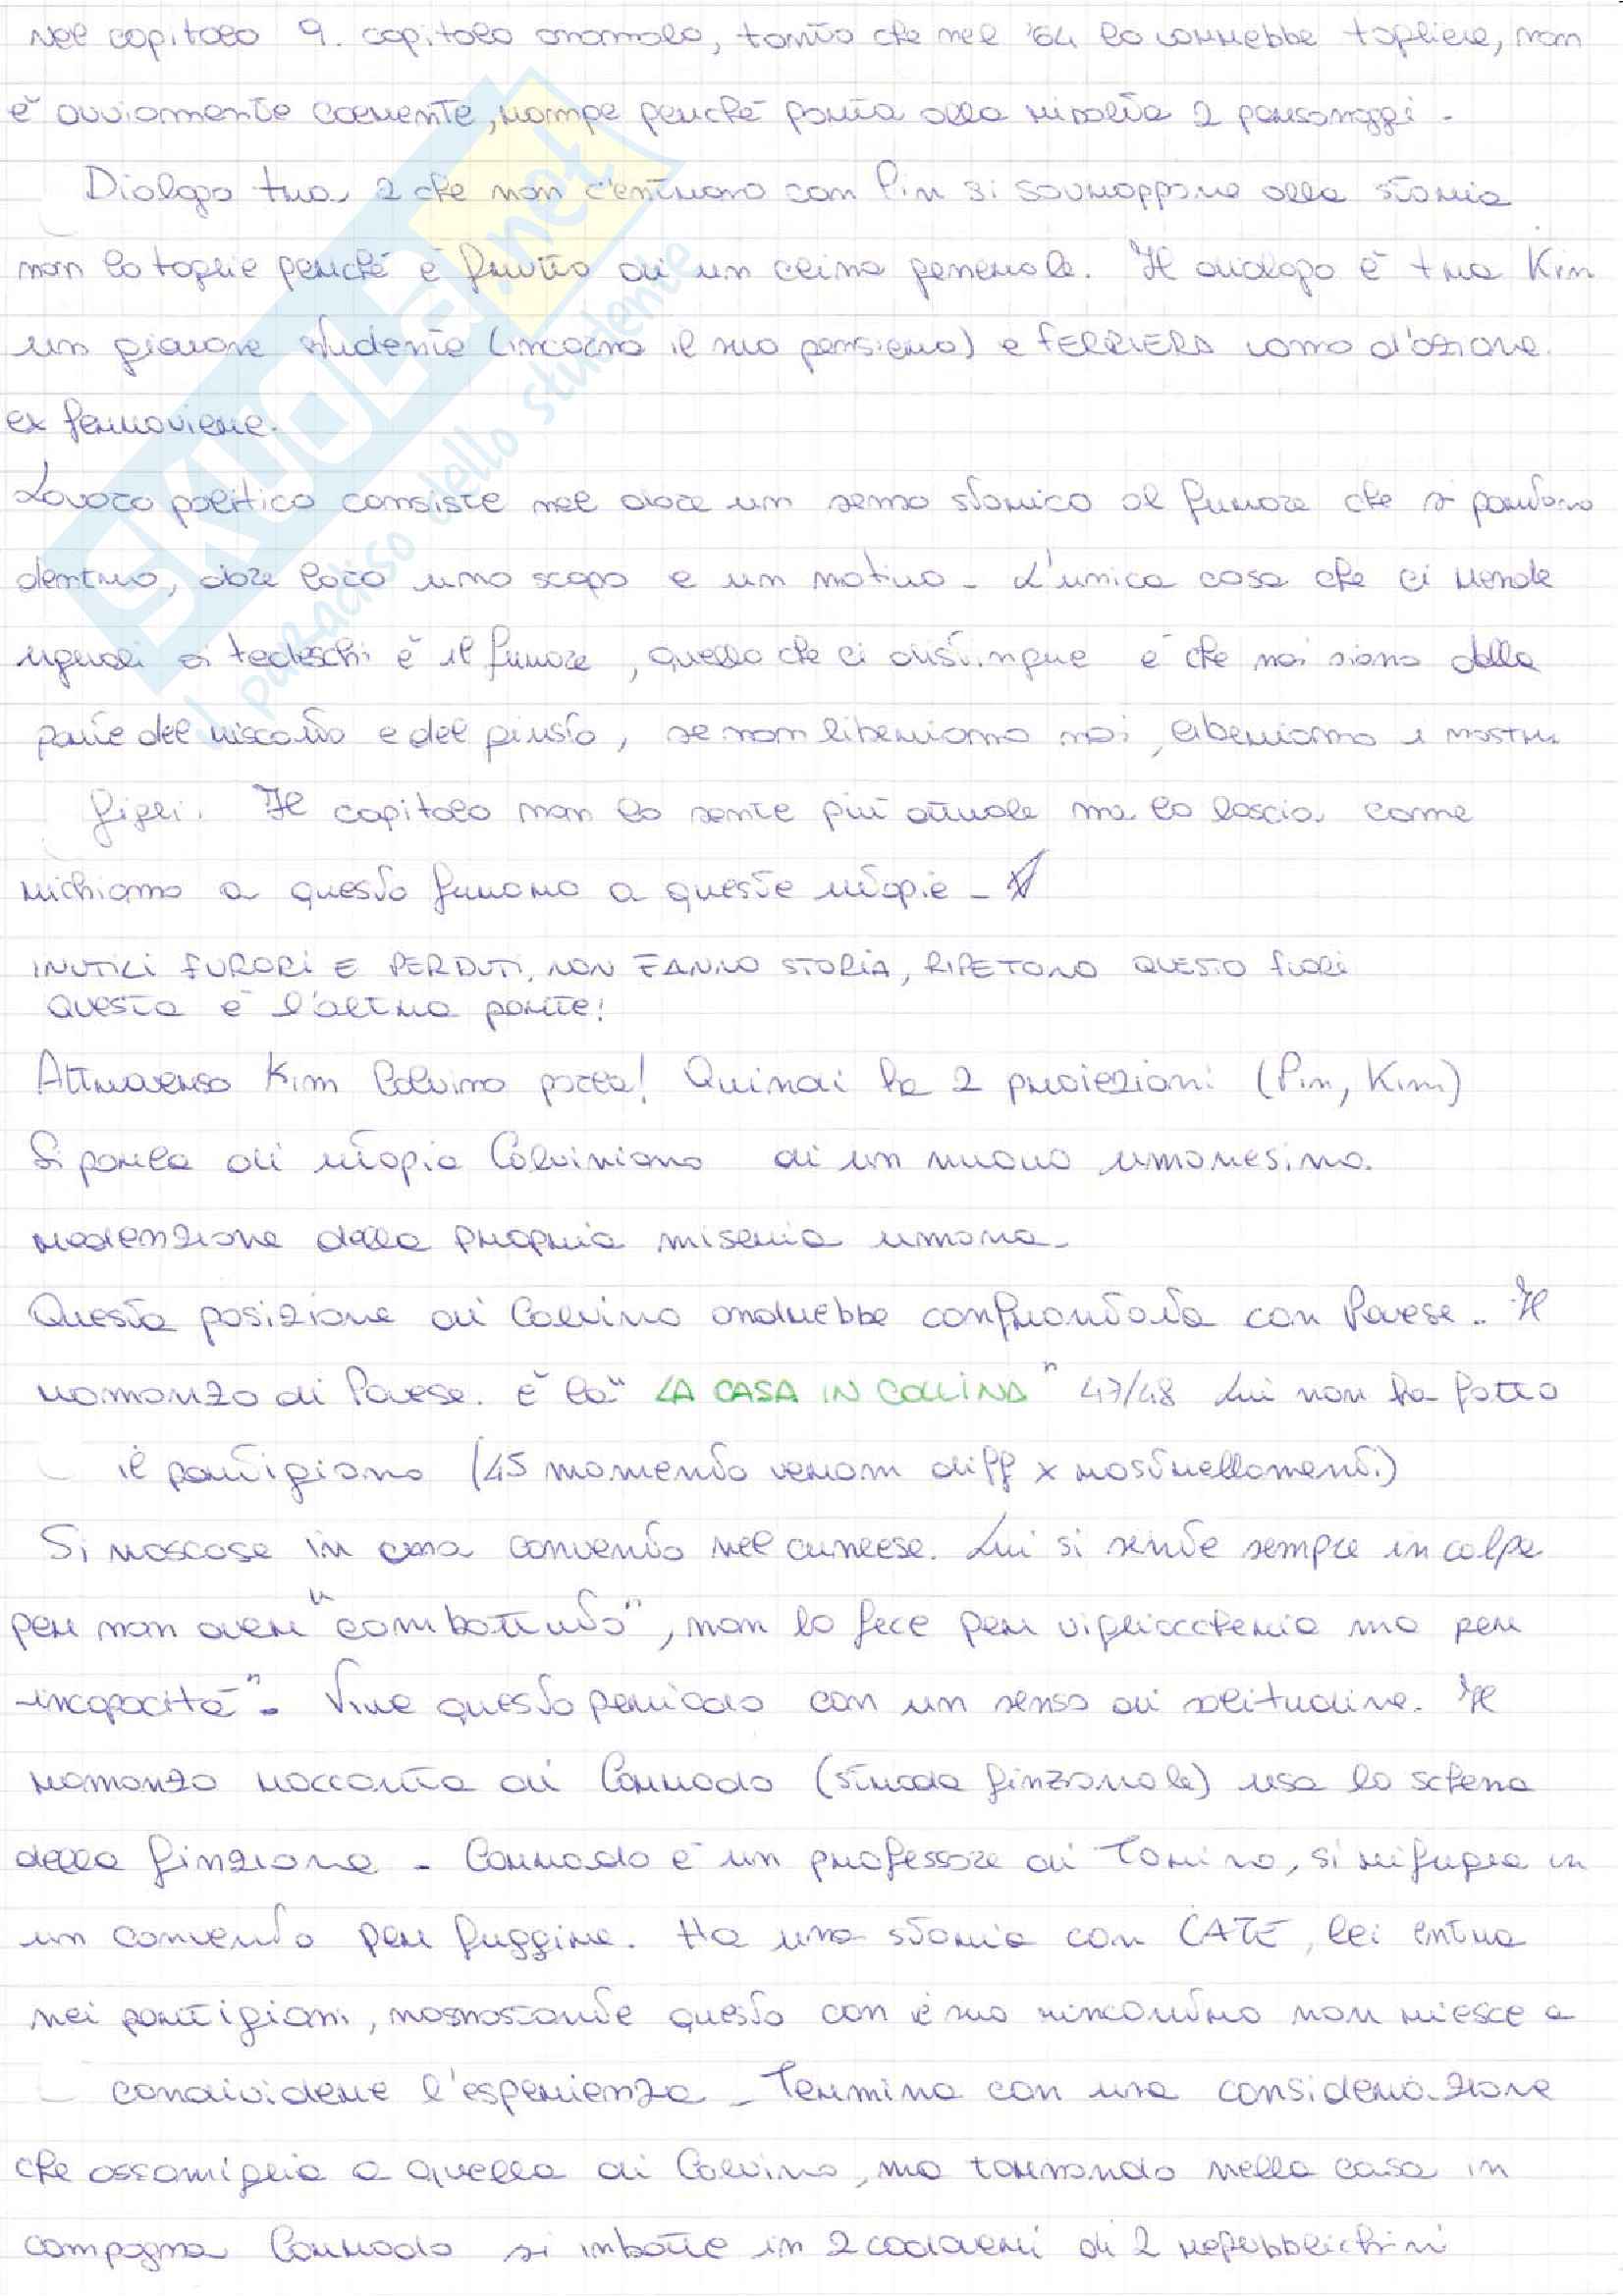 Nel capitolo 9. capitolo anomalo, tanto che nel '64 lo vorrebbe togliere, non
è ovviamente coerente, rompe perché porta alla ribalta 2 personaggi.
Dialogo tra 2 che non c'entrano con Pin si sovrappone alla storia
non lo toglie perché è frutto di un clima generale. Il dialogo è tra Kim
un giovane studente (incarna il suo pensiero) e FERRIERA uomo d'azione
ex ferroviere.
Lavoro politico consiste nel dare un senso storico al furore che si portano
dentro, dare loro uno scopo e un motivo - L'unica cosa che ci rende
uguali ai tedeschi è il furore, quello che ci distingue è che noi siamo dalla
parte del riscatto e del giusto, se non liberiamo noi, liberiamo i nostri
figli. Il capitolo non lo sente più attuale ma lo lascia come
richiamo a questo furore a queste utopie -
INUTILI FURORI E PERDUTI, NON FANNO STORIA, RIPETONO QUESTO FUORI
QUESTA è l'altra parte!
Attraverso Kim Calvino parla! Quindi ha 2 proiezioni (Pin, Kim)
Si parla di utopia Calviniana di un nuovo umanesimo.
redenzione della propria miseria umana -
Questa posizione di Calvino andrebbe confrontata con Pavese.. Il
romanzo di Pavese. è la "LA CASA IN COLLINA" 47/48 Lui non ha fatto
il partigiano (45 momento veram diff x rastrellamenti)
Si nascose in una convento nel cuneese. Lui si sente sempre in colpa
per non aver "combattuto", non lo fece per vigliaccheria ma per
incapacità". Vive questo periodo con un senso di solitudine. Il
romanzo racconta di Corrado (strada finzionale) usa lo schema
della finzione - Corrado è un professore di Torino, si rifugia in
un convento per fuggire. Ha una storia con CATE, lei entra
nei partigiani, nosnostante questo con il suo rincontro non riesce a
condividere l'esperienza - Termina con una considerazione
che assomiglia a quella di Calvino, ma tornando nella casa in
campagna Corrado si imbatte in 2 cadaveri di 2 repubblichini
SKUOLA.net
il paradiso dello studente